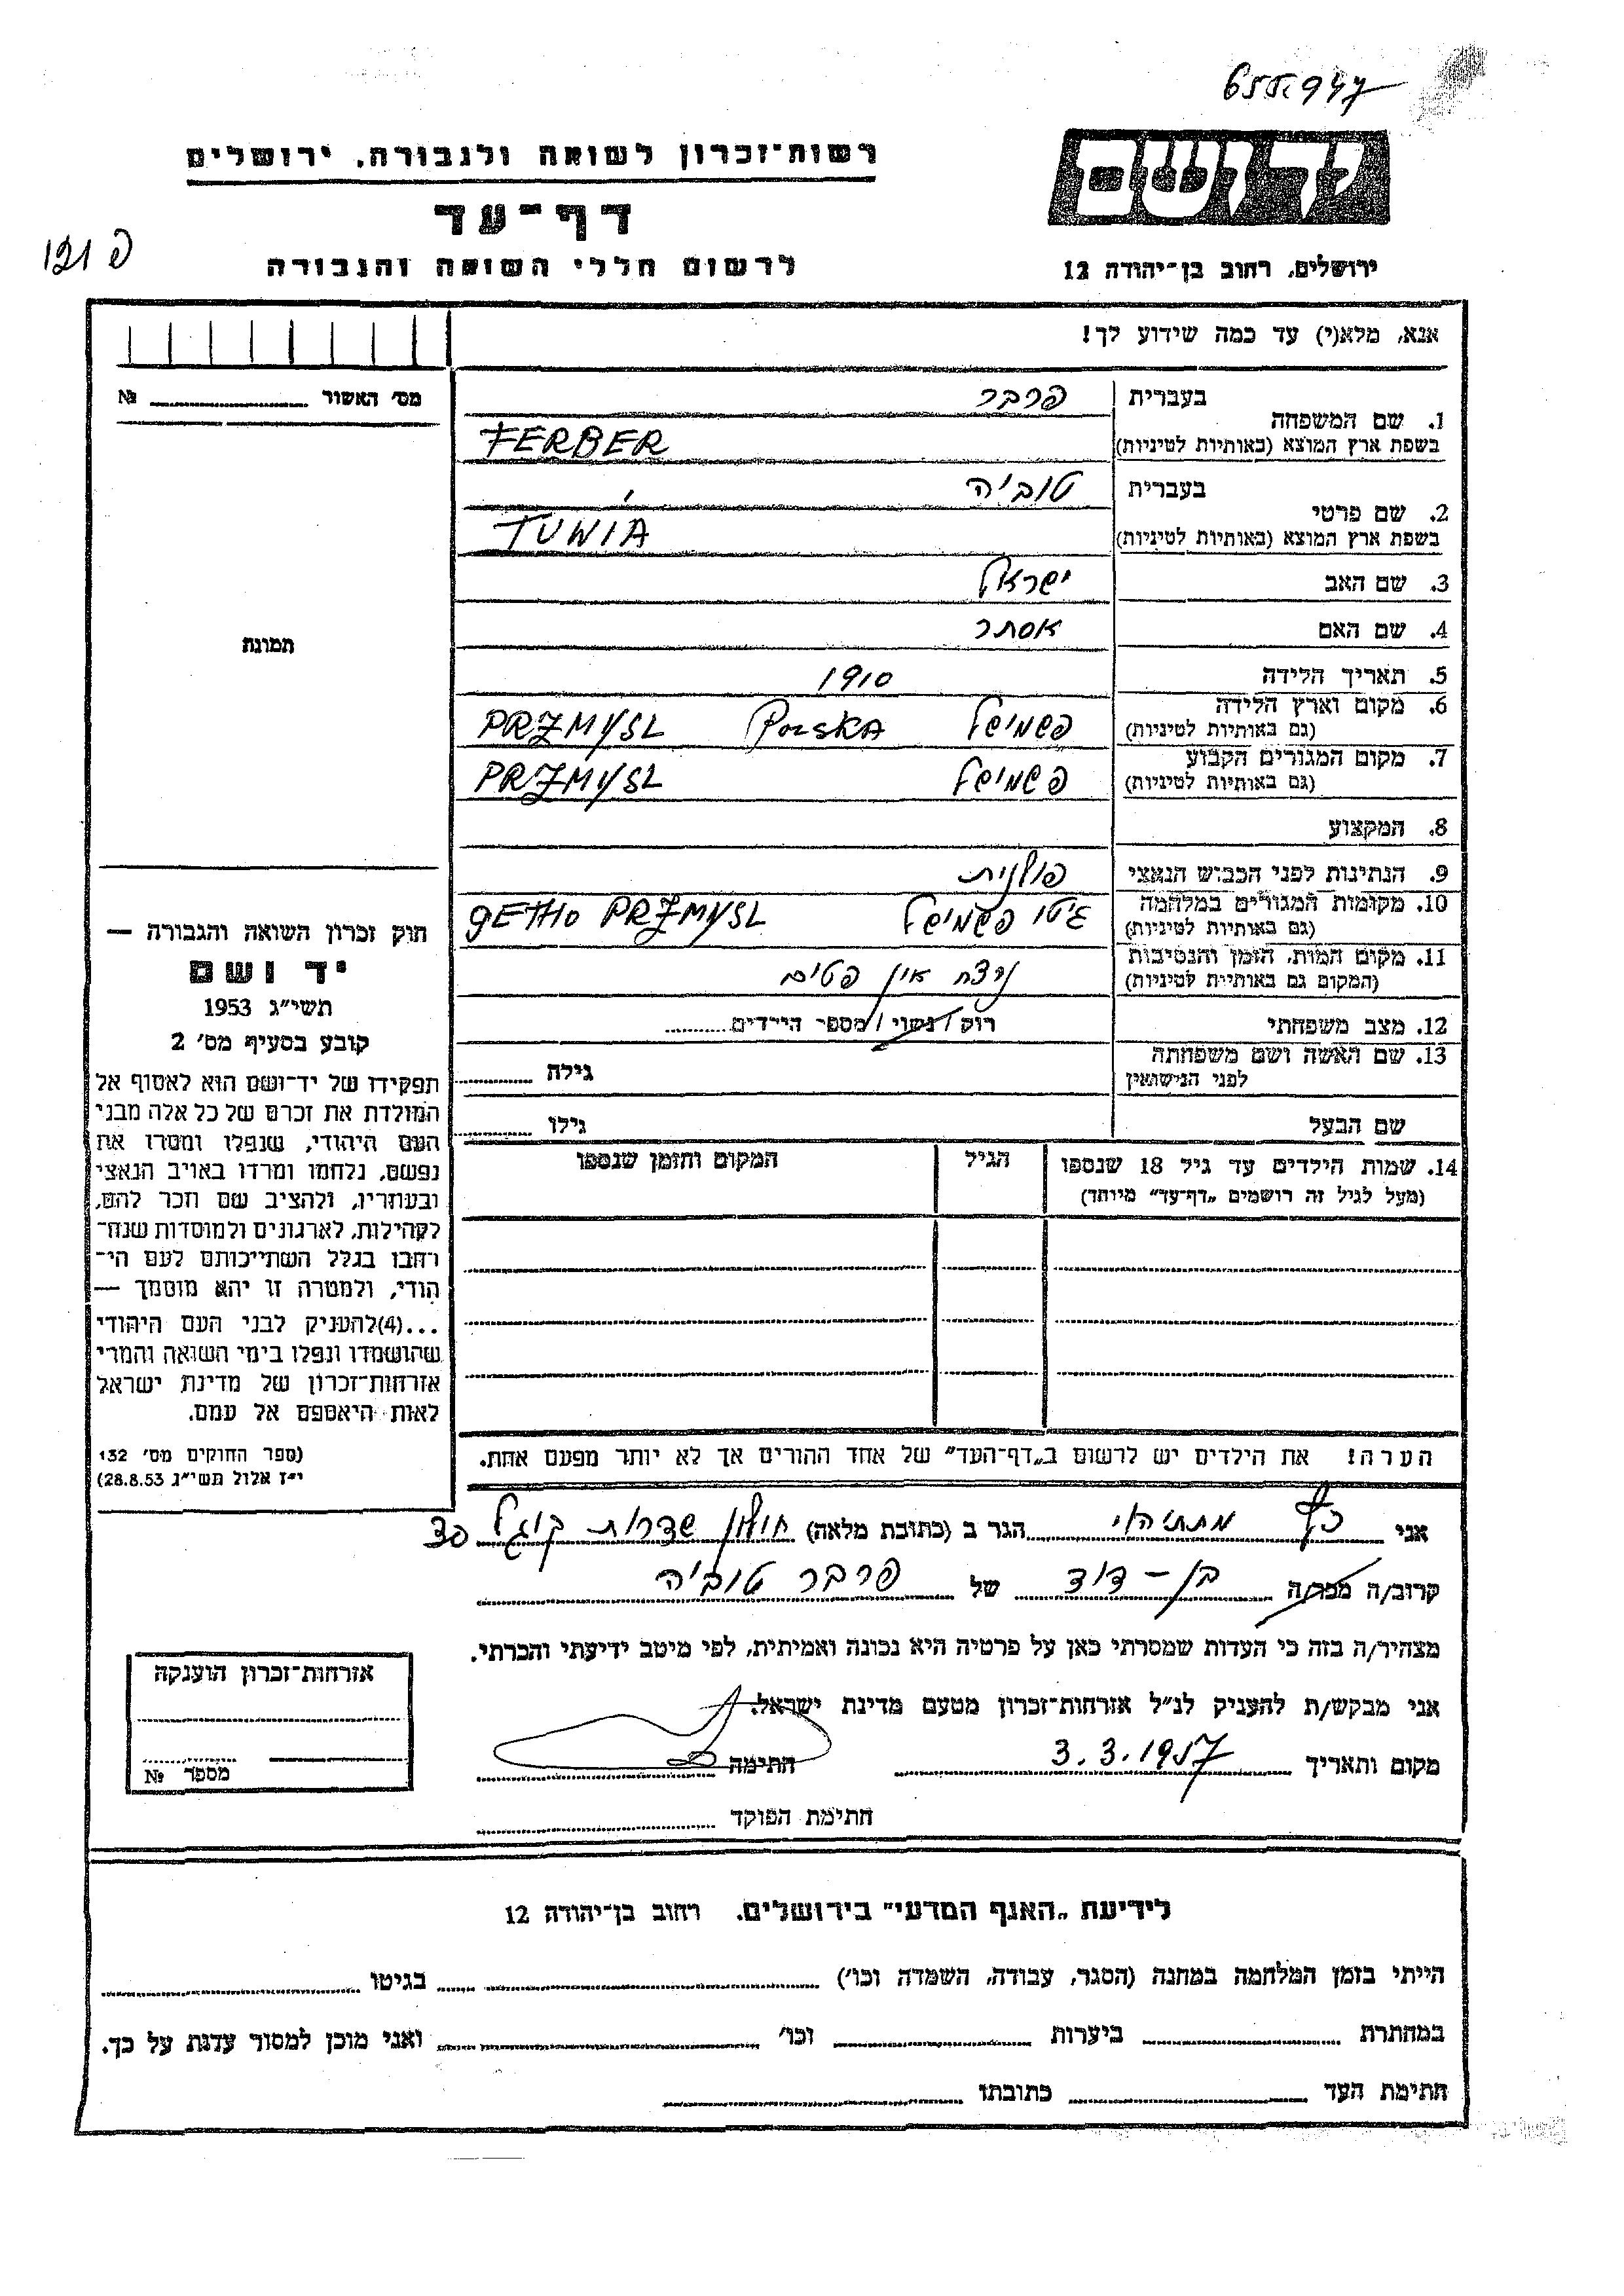 655947
ידושם
רשות־זכרון לשואה ולגבורה, ירושלים
דף־עד
לרשום חללי השואה והגבורה
ירושלים, רחוב בן־יהודה 12
אנא, מלא(י) עד כמה שידוע לך!
מס׳ האשור №
1. שם המשפחה
בעברית פרבר
בשפת ארץ המוצא (באותיות לטיניות) FERBER
2. שם פרטי
בעברית טוביה
בשפת ארץ המוצא (באותיות לטיניות) TUWIA
3. שם האב ישראל
4. שם האם אסתר
5. תאריך הלידה 1910
6. מקום וארץ הלידה (גם באותיות לטיניות) פשמישל POLSKA PRZMYSL
7. מקום המגורים הקבוע (גם באותיות לטיניות) פשמישל PRZMYSL
8. המקצוע
9. הנתינות לפני הכבוש הנאצי פולנית
10. מקומות המגורים במלחמה (גם באותיות לטיניות) גיטו פשמישל GETHO PRZMYSL
11. מקום המות, הזמן והנסיבות (המקום גם באותיות לטיניות) נרצח אין פטים
12. מצב משפחתי רוק / נשוי / מספר הילדים
13. שם האשה ושם משפחתה לפני הנישואין גילה
שם הבעל גילו
14. שמות הילדים עד גיל 18 שנספו הגיל המקום והזמן שנספו
(מעל לגיל זה רושמים „דף־עד״ מיוחד)
הערה! את הילדים יש לרשום ב„דף־העד״ של אחד ההורים אך לא יותר מפעם אחת.
תמונה
חוק זכרון השואה והגבורה —
יד ושם
תשי״ג 1953
קובע בסעיף מס׳ 2
תפקידו של יד־ושם הוא לאסוף אל
המולדת את זכרם של כל אלה מבני
העם היהודי, שנפלו ומסרו את
נפשם, נלחמו ומרדו באויב הנאצי
ובעוזריו, ולהציב שם וזכר להם,
לקהילות, לארגונים ולמוסדות שנח־
רחבו בגלל השתייכותם לעם הי־
הודי, ולמטרה זו יהא מוסמך —
...(4)להעניק לבני העם היהודי
שהושמדו ונפלו בימי השואה והמרי
אזרחות־זכרון של מדינת ישראל
לאות היאספם אל עמם.
(ספר החוקים מס׳ 132
י״ז אלול תשי״ג 28.8.53)
אני כץ מתתיהו הגר ב (כתובת מלאה) חולון שדרות קוגל
קרוב/ה מכר/ה בן - דוד של פרבר טוביה
מצהיר/ה בזה כי העדות שמסרתי כאן על פרטיה היא נכונה ואמיתית, לפי מיטב ידיעתי והכרתי.
אני מבקש/ת להעניק לנ״ל אזרחות־זכרון מטעם מדינת ישראל.
מקום ותאריך 3.3.1957 חתימה
חתימת הפוקד
אזרחות־זכרון הוענקה
מספר №
לידיעת „האגף המדעי״ בירושלים. רחוב בן־יהודה 12
הייתי בזמן המלחמה במחנה (הסגר, עבודה, השמדה וכו׳) בגיטו
במחתרת ביערות וכו׳ ואני מוכן למסור עדות על כך.
חתימת העד כתובתו